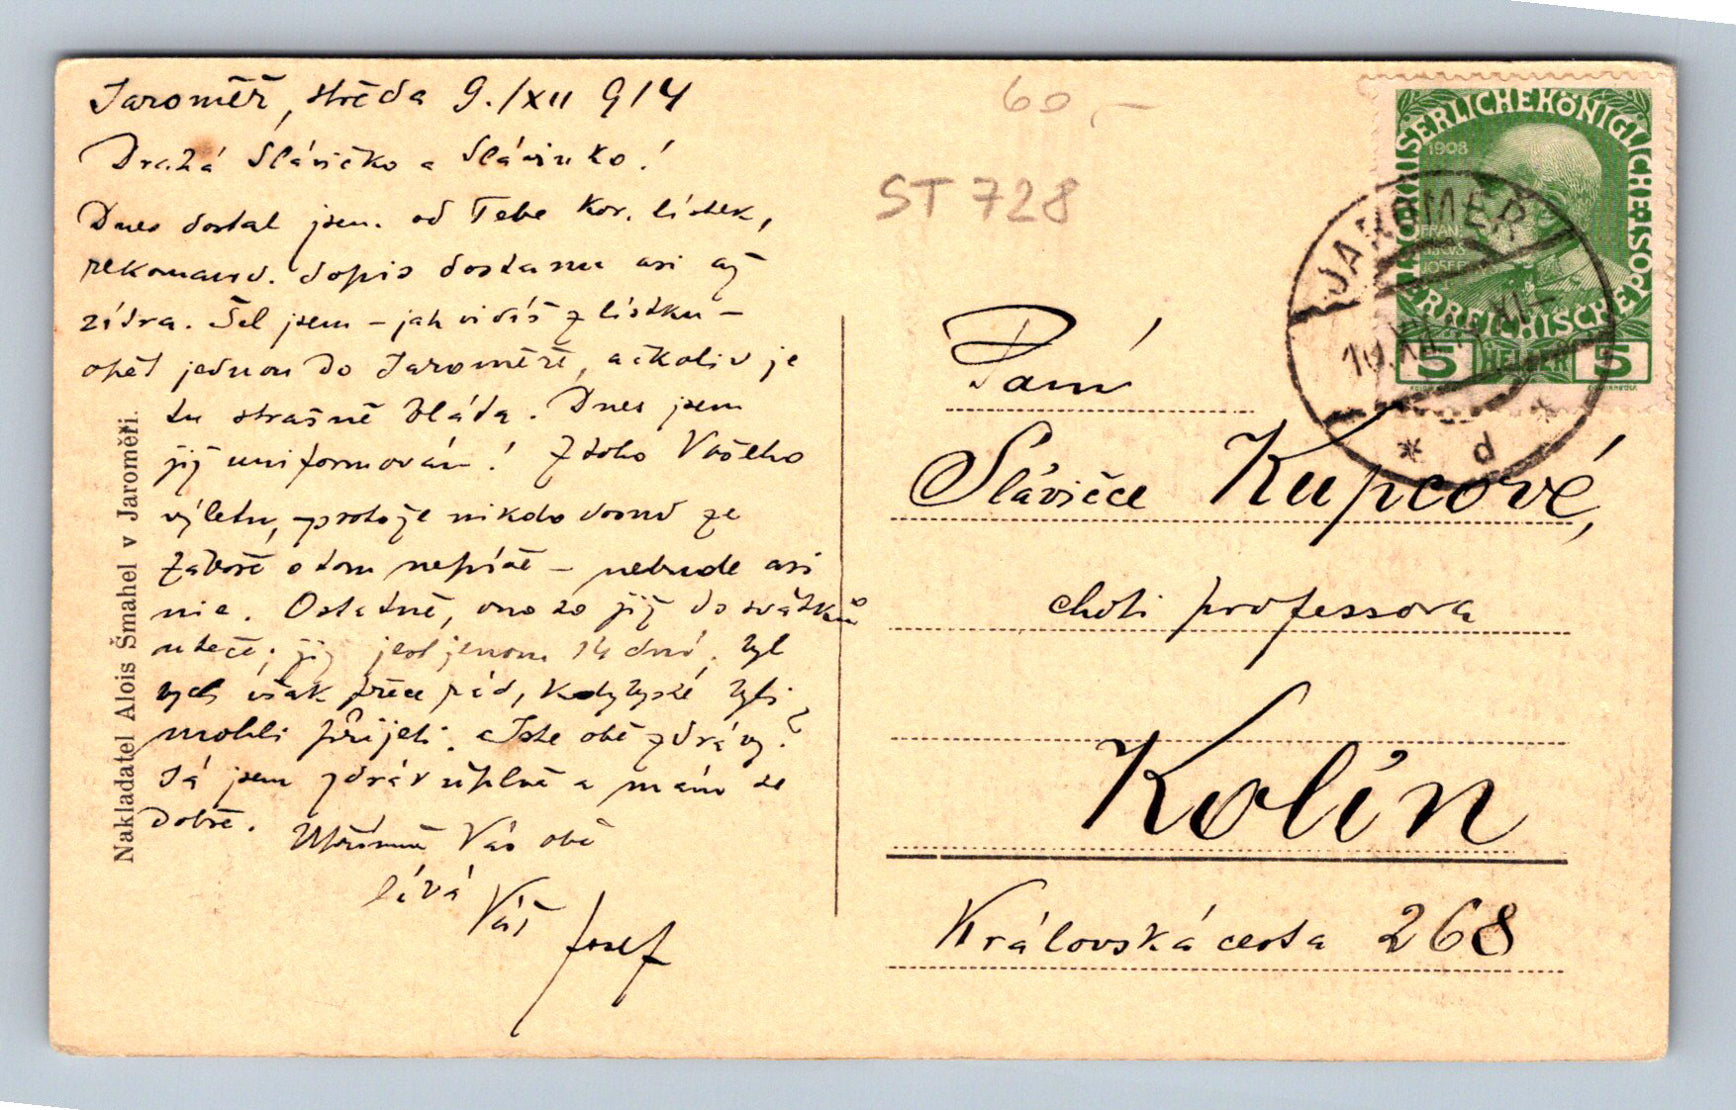 Jaroměř, středa 9./XII 914
Drahá Slávičko a Slávinko!
Dnes dostal jsem od Tebe kor. lístek,
rekomand. dopis dostanu asi až
zítra. Šel jsem – jak vidíš z lístku –
opět jednou do Jaroměře, ačkoliv je
tu strašně bláta. Dnes jsem
již uniformován! Z toho Vašeho
výletu, protože nikdo domů ze
o tom nepíše – nebude asi
nic. Ostatně, ono to již do svátků
uteče; již jest jenom 14 dní. Byl
bych však přece rád, kdybyste byli
mohli přijeti. Jste obě zdrávy?
Já jsem zdráv úplně a mám se
dobře. Vás obě
líbá
Váš Josef
Nakladatel Alois Šmahel v Jaroměři.
60,–
ST 728
KAISERLICHE KÖNIGLICHE ÖSTERREICHISCHE POST
1908
FRAN
JOSEF
5 HELLER 5
JAROMĚŘ
10.XII.14.XI–
* d *
Paní
Slávičce Kupcové,
choti professora
Kolín
Královská cesta 268